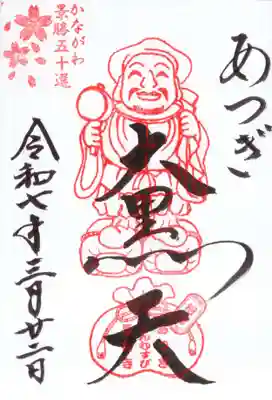 あつぎ
大黒天
かながわ
景勝五十選
令和七年三月廿二日